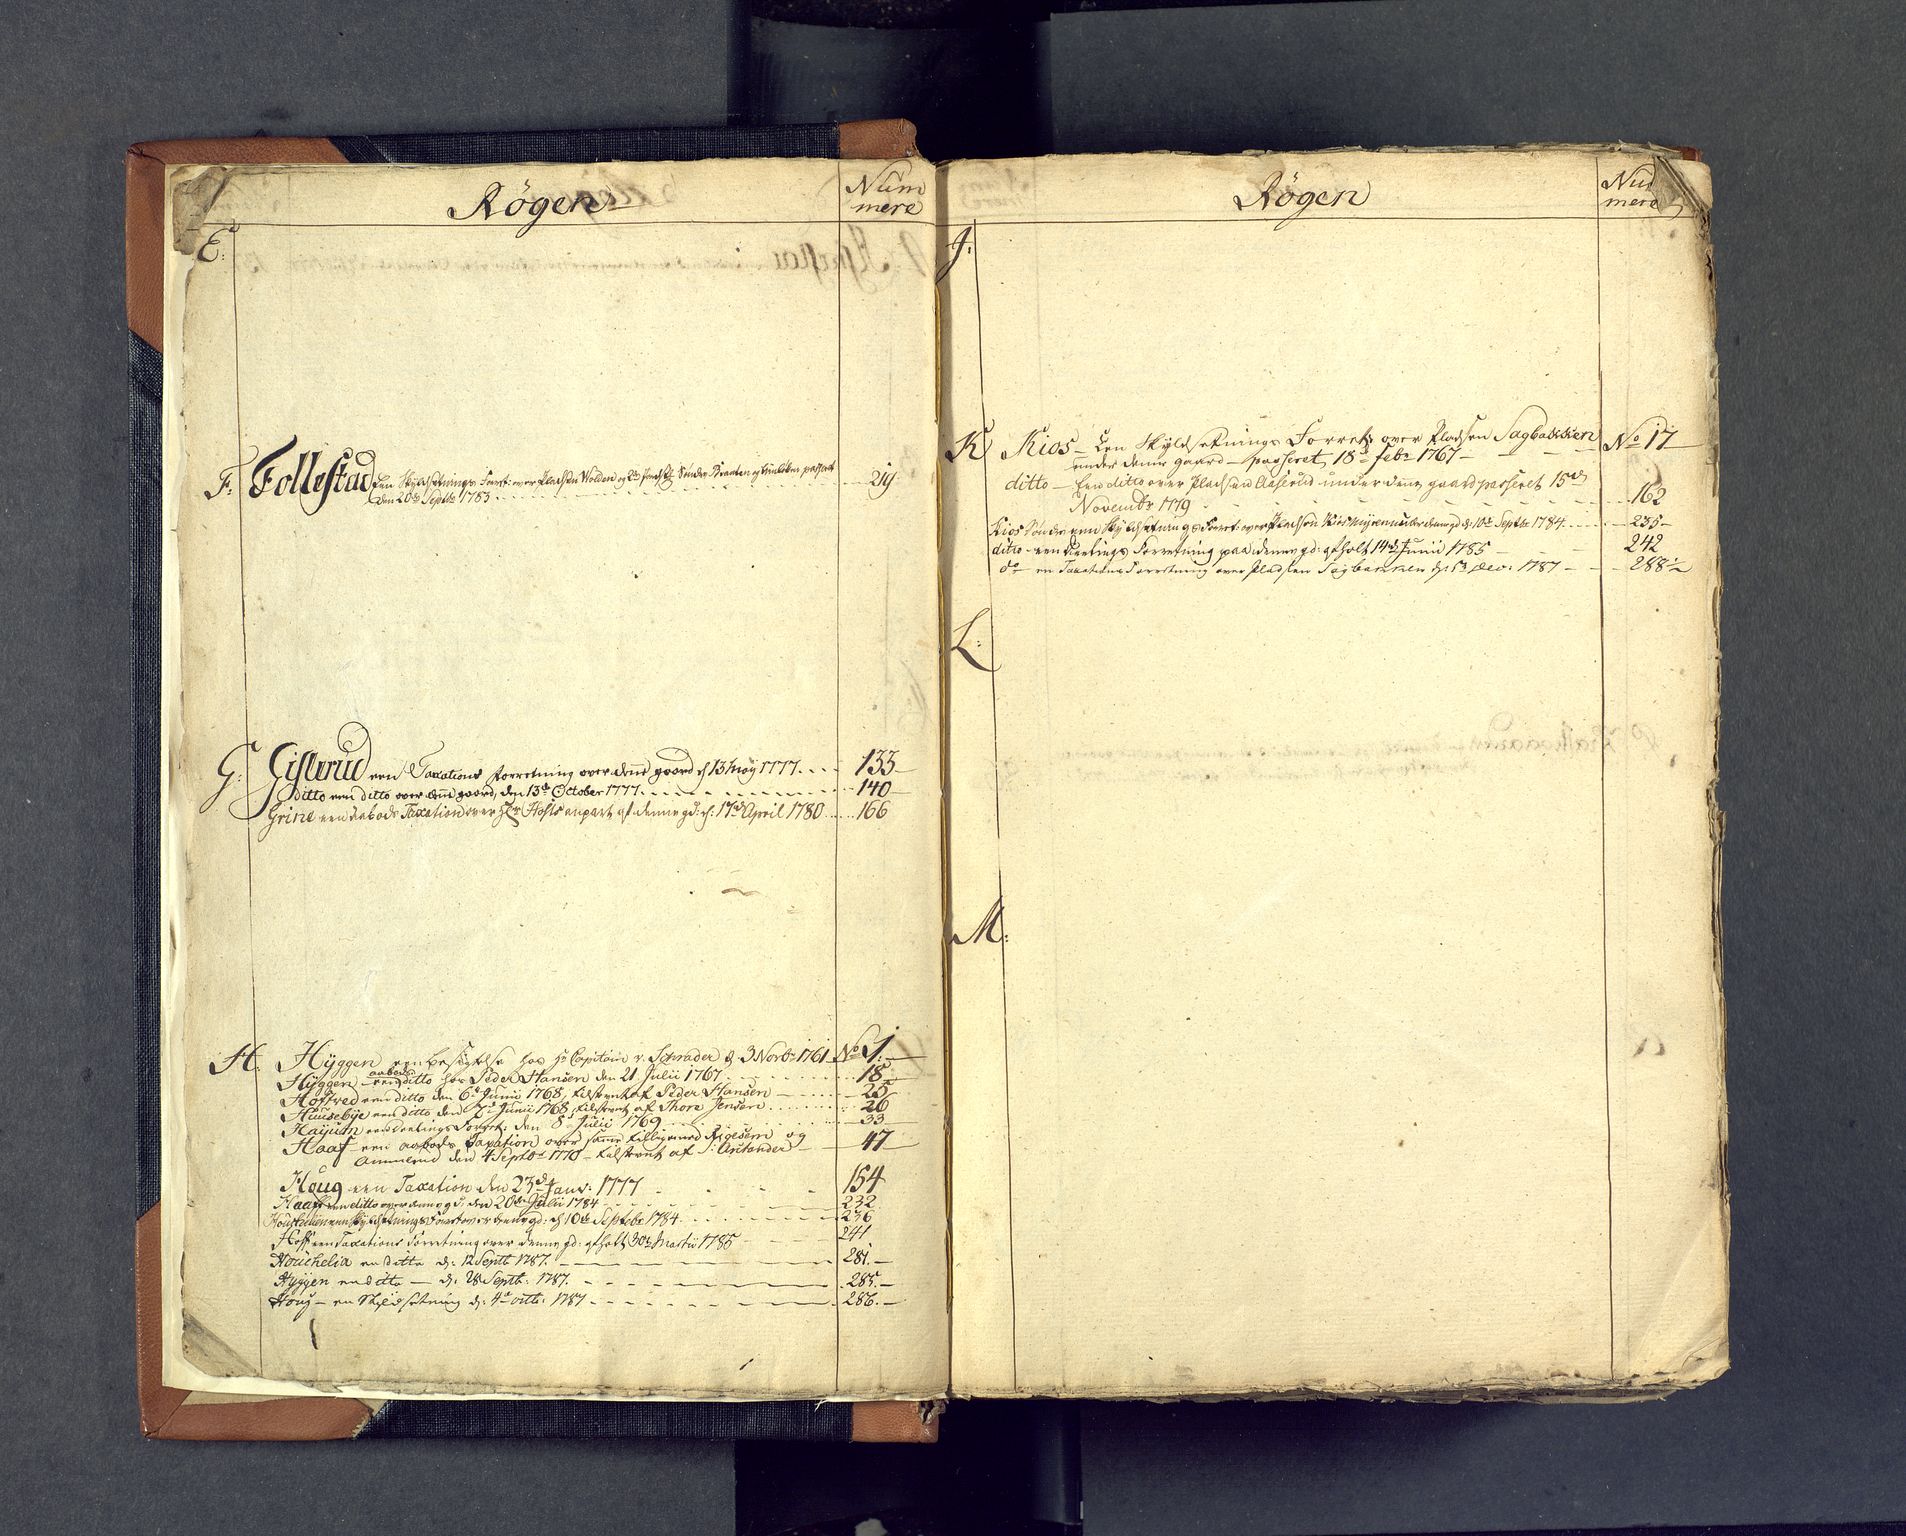 Røgen
Num
mere
E:
F: Follestad Een Skyldsetnings Forret: over Pladsen Wolden og Søndre Braaten passeret
den 20de Septbr 1783 219
G: Gisterud een Taxations forretning over denne gaard d 13 Maÿ 1777 133
ditto een ditto over denne gaard, den 13de October 1777 140
Grine een aabods Taxation over Hr Hofts anpart af denne gd: d: 17de April 1780 166
H: Hÿggen een besigtelse hos Hr Capitain v. Schrader d 3 Novbr 1761 No 1.
Hÿggen een aabods ditto hos Peder Hansen den 21 Julii 1767 18
Hoftved een ditto den 6te Junii 1768, tilstevnt af Peder Hansen 25
Huusebÿe een ditto den 7de Junii 1768, tilstevnt af Thore Jensen 26
Hajum een deelings Forret: den 8de Julii 1769 33
Haaf een aabods Taxation over samme tilligemed Rigesem og
den 4 Septbr 1770 tilstevnt af 47
Houg een Taxation den 23de Janv: 1777 154
Haaff een ditto over denne gd: den 20de Julii 1784 232
een Skyldsetnings Forret over denne gd: d 10de Septbr 1784 236
Hoff een Taxations Forretning over denne gd: afholt 30te Martii 1785 241
Houchelia en ditto d: 12 Septb 1787. 281.
Hÿggen en ditto d: 28 Septb: 1787. 285.
Houg en Skyldsetning d: 4de octb: 1787 286.
Røgen
Num
mere
J:
K Kios Een Skyldsetnings Forret: over Pladsen Sagbakken No 17
under denne gaard passeret 18de febr 1767
ditto Een ditto over Pladsen Aaserud under denne gaard passeret 15de
Novembr 1779 162
Kios Søndre een Skyldsetnings Forret: over Pladsen Kiosmÿren under denne gd d: 10de Septbr 1784 235
ditto een deelings Forretning paa denne gd: afholt 14de Junii 1785 242
do en Taxations Forretning over Pladsen Sagbakken d: 13 Dec: 1787 288½
L:
M: